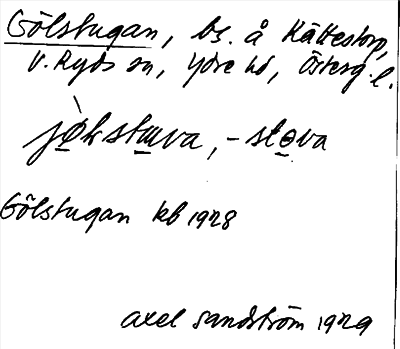 Gölstugan, bs. å Kättestorp,
V. Ryds sn, Ydre hd, Österg. l.
jø̀kstuva, -stova
Gölstugan kb 1928
Axel Sandström 1929